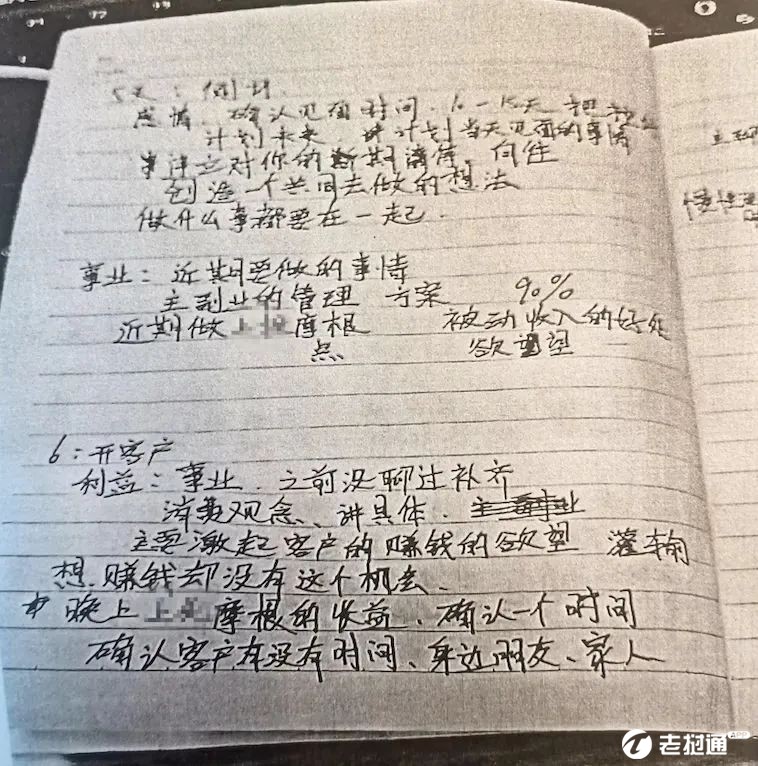 5天:
感情 确认见面时间. 10-15天
计划未来 计划当天见面的事情
对你的 向往
创造一个共同去做的想法
做什么事都要在一起.
事业: 近期要做的事情
主副业的管理 方案 90%
近期做 摩根 被动收入的好处
点 欲望
6:开客户
利益:事业. 之前没聊过补齐
消费观念、讲具体.
主要激起客户的赚钱的欲望 灌输
想.赚钱却没有这个机会.
晚上 摩根的收益. 确认一个时间
确认客户有没有时间、身边朋友、家人
主聊
老挝通
APP